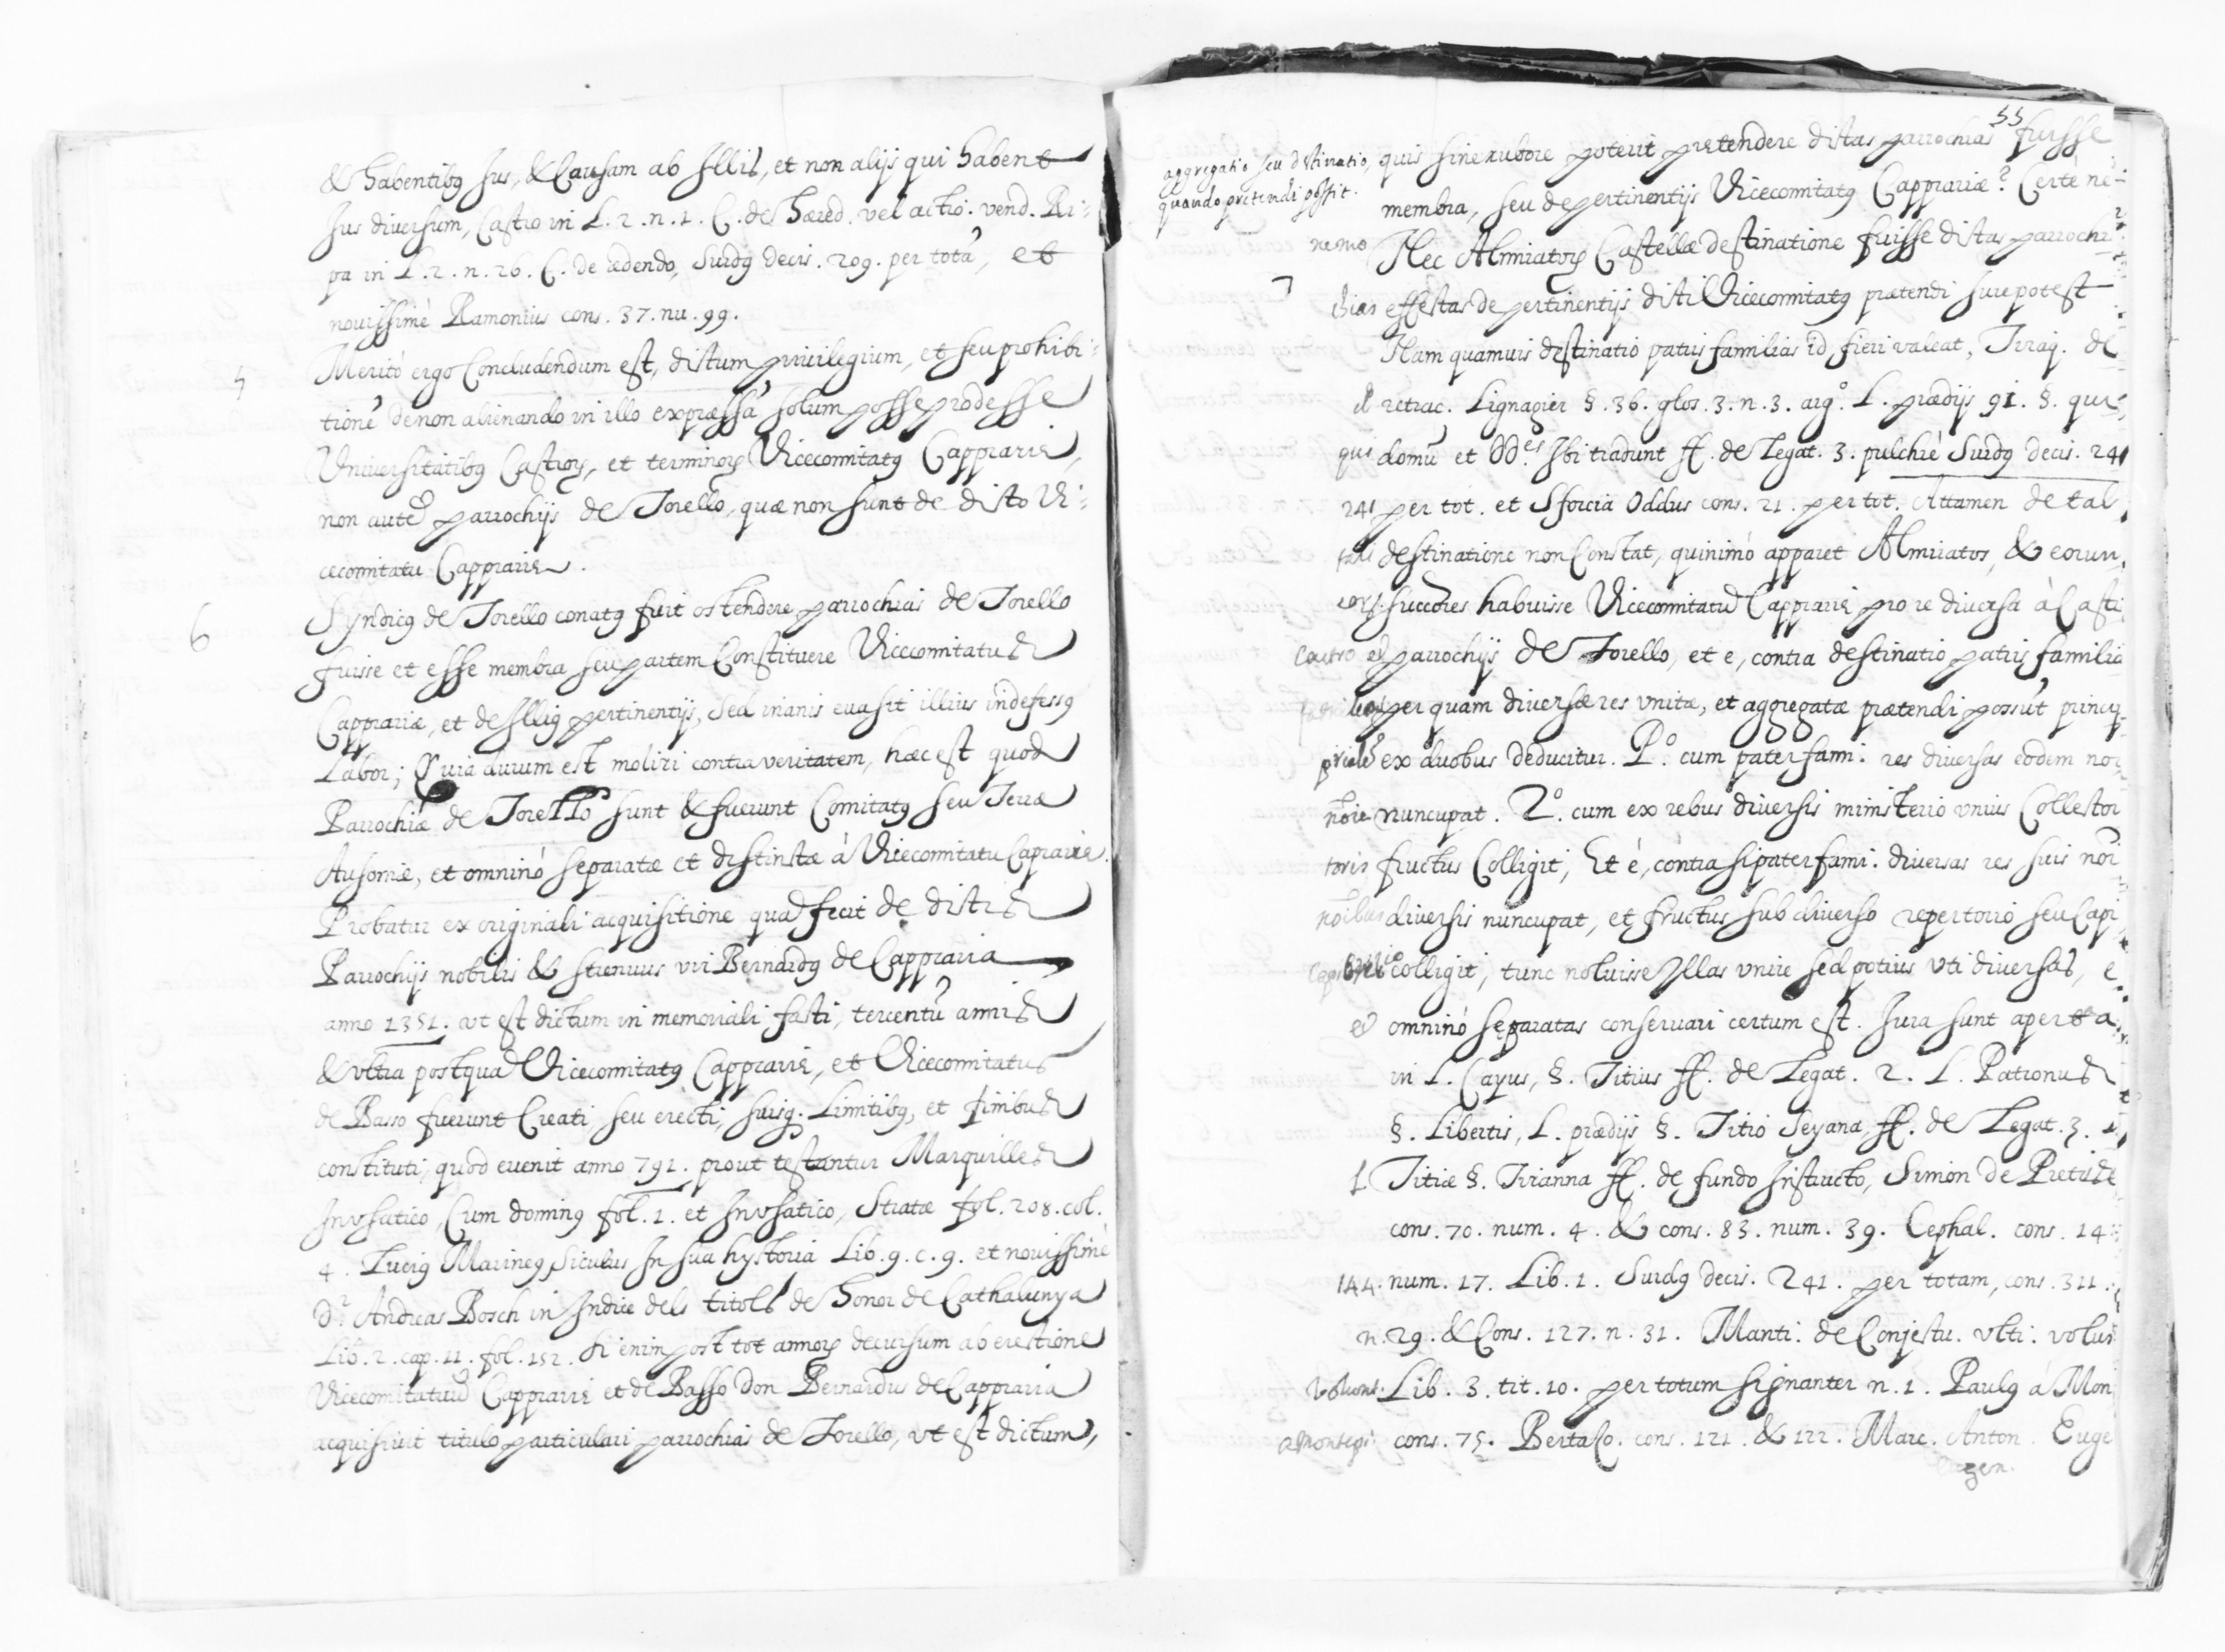 & habentibꝰ Jus, & Causam ab Illis, et non alijs qui habent
Jus diversum, Castro in L. 2. n. 1. C. de hæred. vel actio. vend. Ri-
pa in L. 2. n. 26. C. de ædendo, Surdꝰ decis. 209. per totã, et
novissimè Ramonius cons. 37. nu. 99.
5 Meritò ergo Concludendum est, dictum privilegium, et seu prohibi-
tionẽ de non alienando in illo expræssã solum posse prodesse
Universitatibꝰ Castroꝝ, et terminoꝝ Vicecomitatꝰ Cappariæ,
non autẽ parrochijs de Torello, quæ non sunt de dicto Vi-
cecomitatu Cappariæ.
6 Syndicꝰ de Torello conatꝰ fuit ostendere parrochias de Torello
fuisse et esse membra seu partem Constituere Vicecomitatus
Capprariæ, et de Illiꝰ pertinentijs, Sed inanis evasit illius indefessꝰ
Labor; Quia durum est moliri contra veritatem, hæc est quod
Parrochiæ de Torello sunt & fuerunt Comitatꝰ seu Terræ
Ausoniæ, et omninò separatæ et distinctæ à Vicecomitatu Caprariæ.
Probatur ex originali acquisitione quã fecit de dictis
Parrochijs nobilis & strenuus vir Bernardꝰ de Cappraria
anno 1351. ut est dictum in memoriali facti, tercentũ annis
& ultra postquã Vicecomitatꝰ Capprariæ, et Vicecomitatus
de Basso fuerunt Creati, seu erecti, suisq. Limitibꝰ, et finibus
constituti, quod evenit anno 791. prout testantur Marquilles
In usatico, Cum dominꝰ fol. 1. et In usatico, Stratæ fol. 208. col.
4. Luciꝰ Marineꝰ Siculus In sua hystoria Lib. 9. c. 9. et novissimè
Dr. Andreas Bosch in Indice dels titols de honor de Cathalunya
Lib. 2. cap. 11. fol. 152. Si enim post tot annoꝝ decursum ab erectione
Vicecomitatuũ Cappariæ et de Basso don Bernardus de Cappraria
acquisivit titulo particulari parrochias de Torello, ut est dictum,
55
aggregatio seu destinatio,
quando pretendi possit.
quis sine rubore poterit prætendere dictas parrochias fuisse
membra, seu de pertinentijs Vicecomitatꝰ Cappariæ? Certè ne-
nemo Nec Almiratoꝝ Castellæ destinatione fuisse dictas parrochi
7 chias effectas de pertinentijs dicti Vicecomitatꝰ prætendi jure potest
Nam quamvis destinatio patris familias id fieri valeat, Tiraq. de
el retrac. Lignagier §. 36. glos. 3. n. 3. argº. L. prædijs 91. §. qui
qui domũ et DDes. Ibi tradunt ff. de Legat. 3. pulchrè Surdꝰ decis. 241
241 per tot. et Sforcia Oddus cons. 21. per tot. Attamen de tal
destinatione non Constat, quinimò apparet Almiratos, & eorun
succẽres habuisse Vicecomitatũ Cappariæ pro re diversa à Castr
Castro et parrochijs de Torello, et e, contra destinatio patris familia
per quam diversæ res unitæ, et aggregatæ prætendi possũt princip
ex duobus deducitur. Pº. cum pater fami: res diversas eodem no
nõie nuncupat. 2º. cum ex rebus diversis ministerio unius Collector
toris fructus Colligit, Et è, còntra si pater fami: diversas res suis nõi
nõibus diversis nuncupat, et fructus sub diverso repertorio seu Capi
colligit, tunc noluisse Illas unire sed potius uti diversas, e
et omninò separatas conservari certum est. Jura sunt aperta
in L. Cayus, §. Titius ff. de Legat. 2. L. Patronus
§. Libertis, L. prædijs §. Titio Seyana, ff. de Legat. 3. L
L Titiæ §. Tiranna ff. de fundo Instructo, Simon de Pretis
cons. 70. num. 4. & cons. 83. num. 39. Cephal. cons. 14
144. num. 17. Lib. 1. Surdꝰ decis. 241. per totam, cons. 311.
n. 29. & Cons. 127. n. 31. Manti: de Conjectu. ulti: volun
volunt. Lib. 3. tit. 10. per totum signanter n. 1. Paulꝰ à Mon
a Montepi cons. 75. Bertaço. cons. 121. & 122. Marc. Anton. Euge